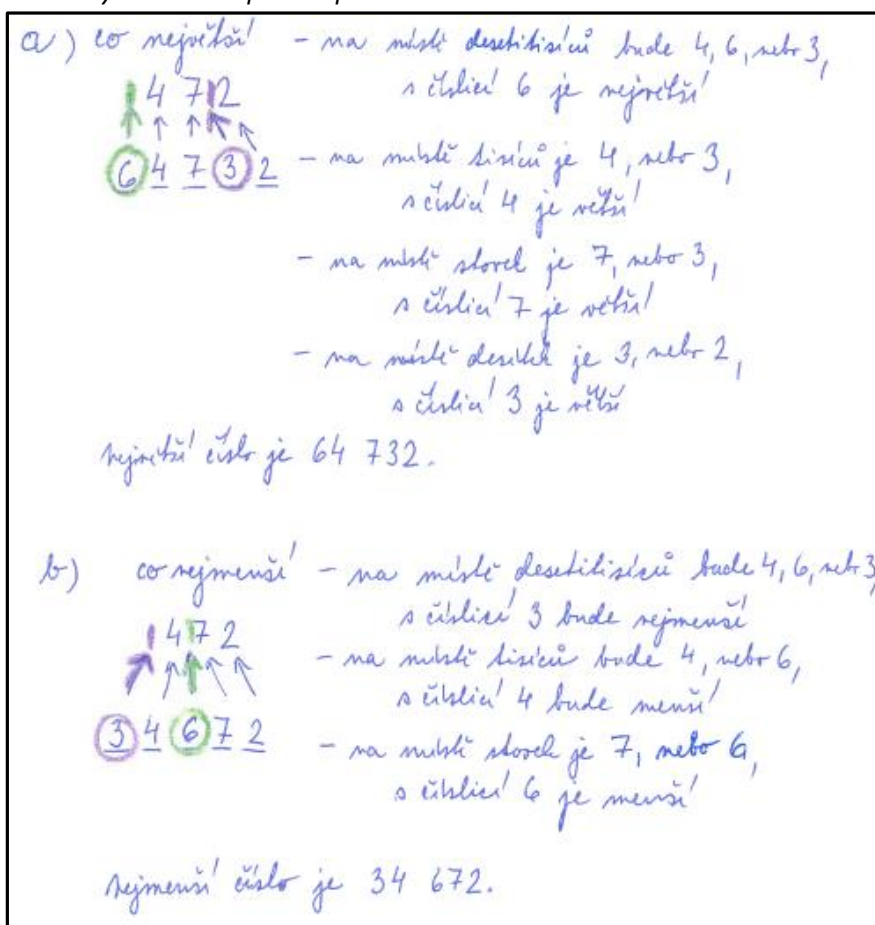 a) co největší - na místě desetitisíců bude 4, 6, nebo 3,
s číslicí 6 je největší
4 7 2
6 4 7 3 2 - na místě tisíců je 4, nebo 3,
s číslicí 4 je větší
- na místě stovek je 7, nebo 3,
s číslicí 7 je větší
- na místě desítek je 3, nebo 2,
s číslicí 3 je větší
největší číslo je 64 732.
b) co nejmenší - na místě desetitisíců bude 4, 6, nebo 3,
s číslicí 3 bude nejmenší
4 7 2
- na místě tisíců bude 4, nebo 6,
s číslicí 4 bude menší
3 4 6 7 2 - na místě stovek je 7, nebo 6,
s číslicí 6 je menší
nejmenší číslo je 34 672.